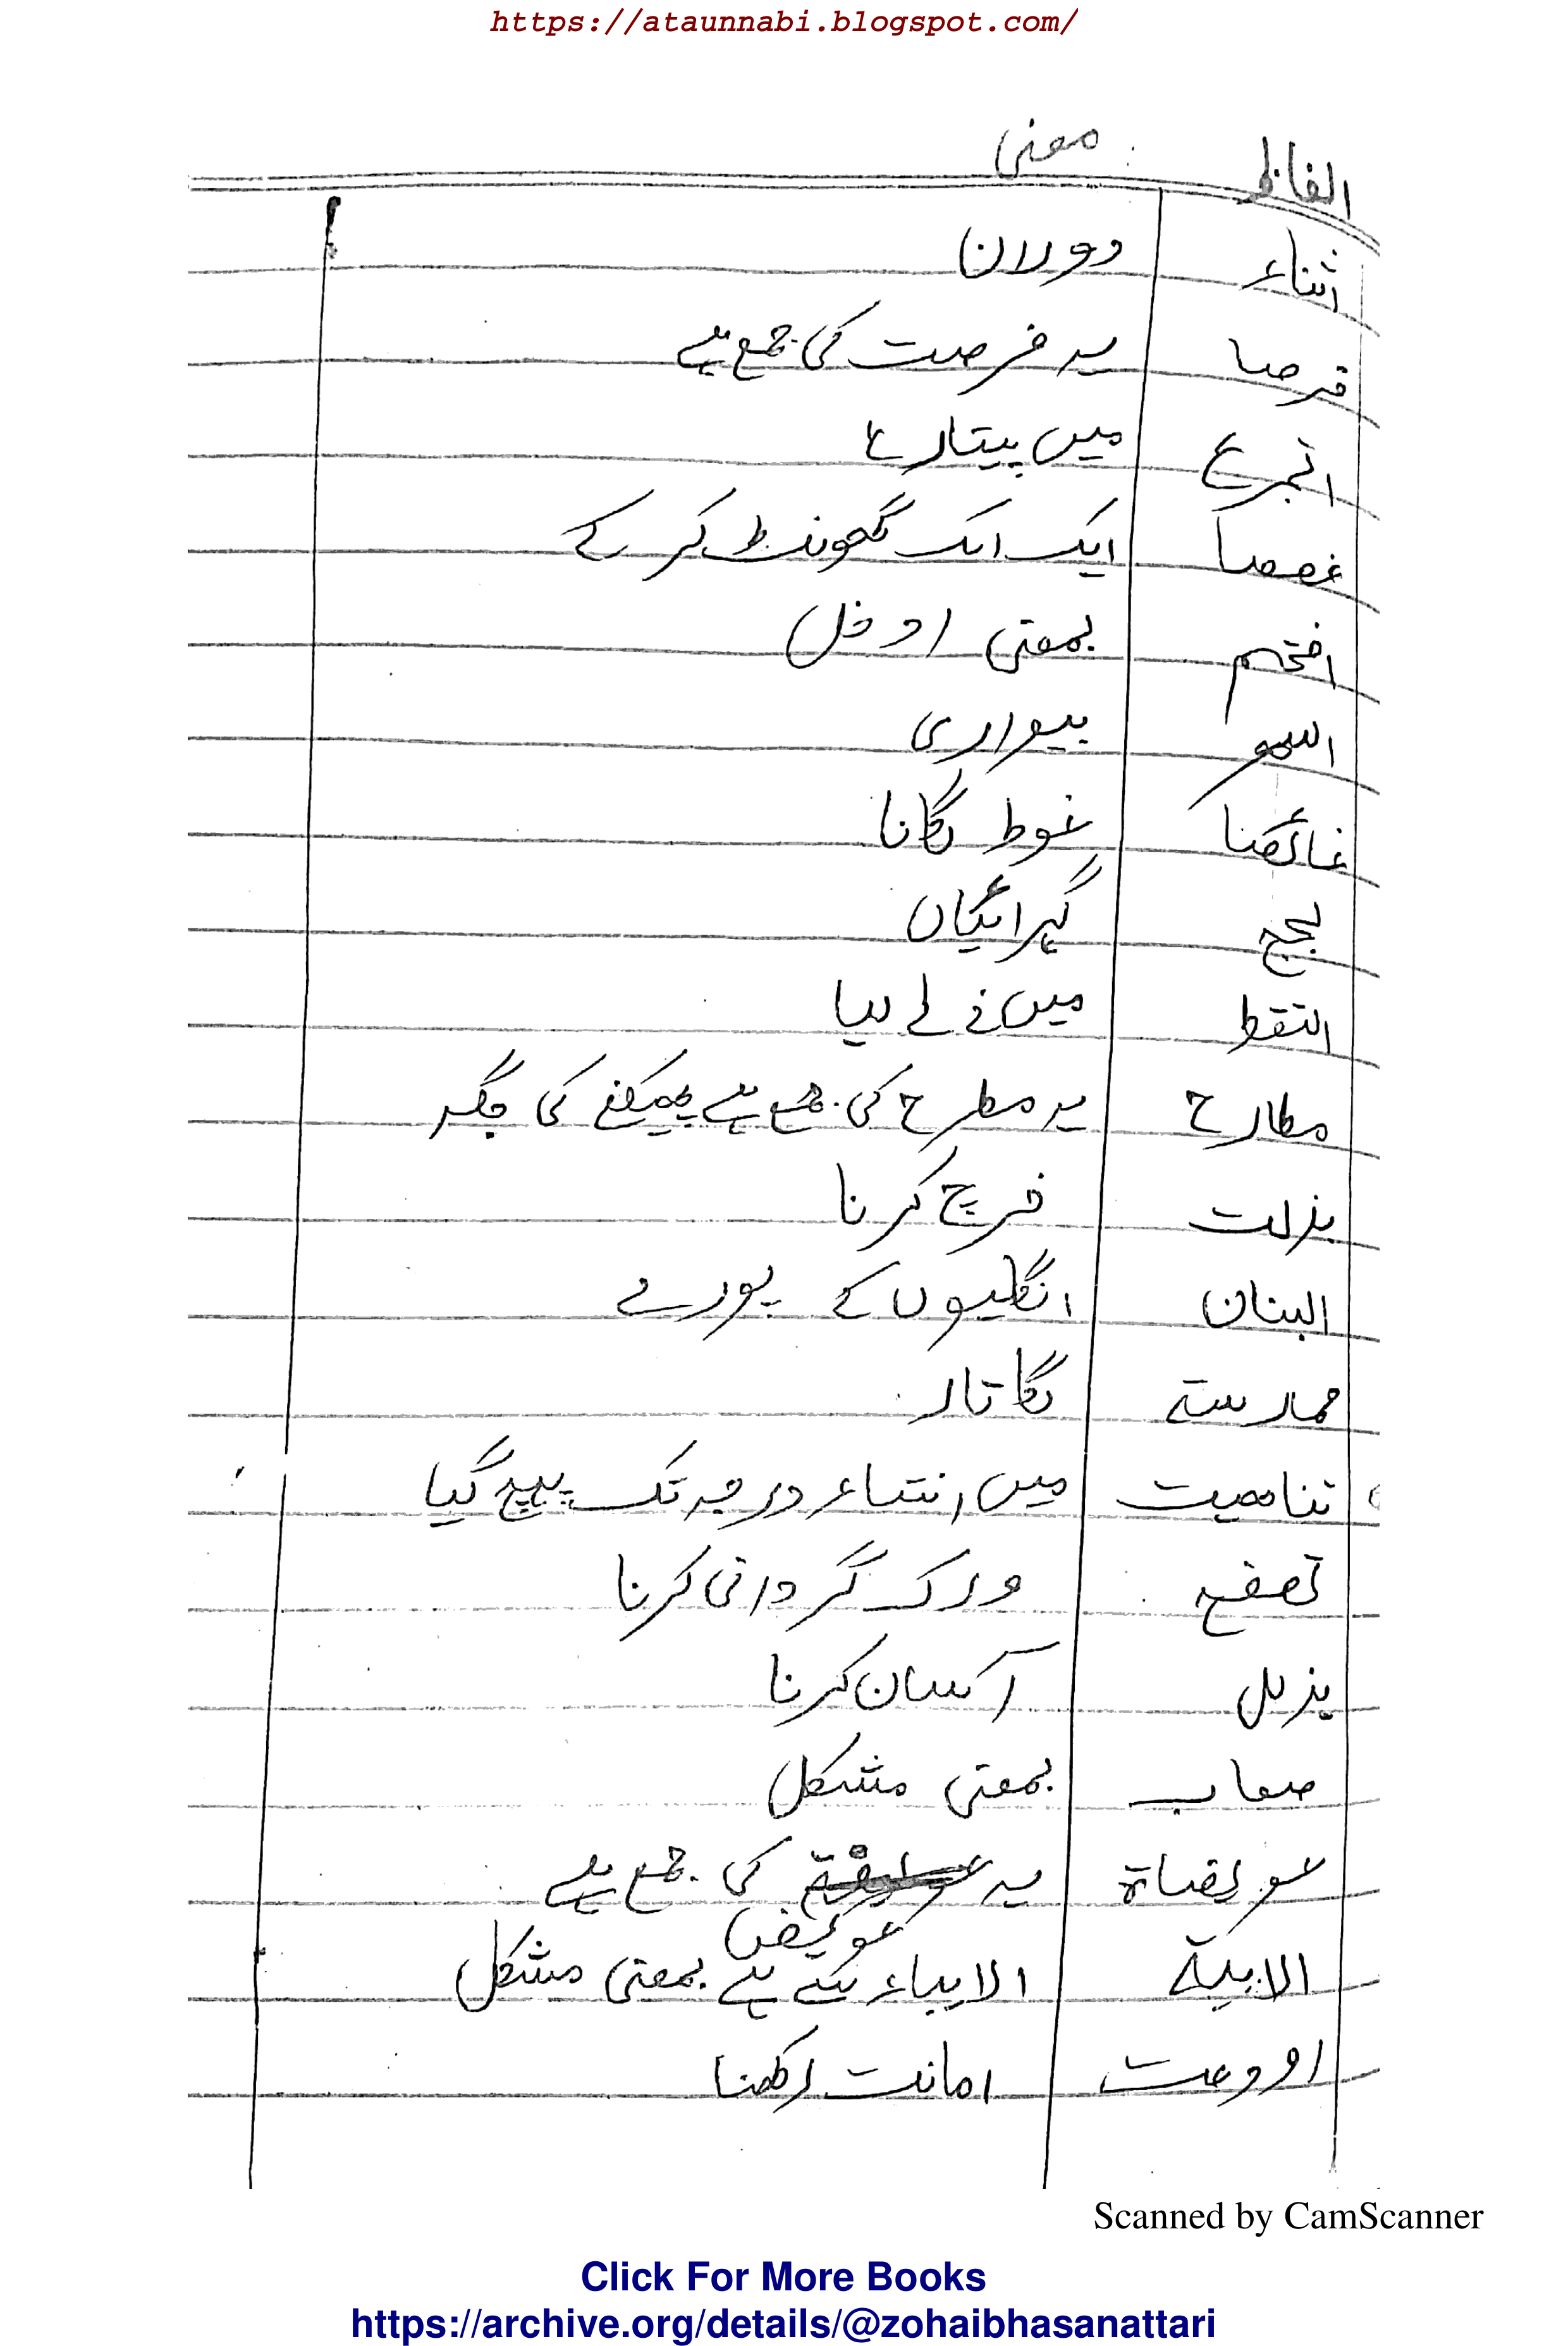 https://ataunnabi.blogspot.com/
الفاظ معنی
اثناء دوران
فرصا یہ فرصت کی جمع ہے
اتجرع میں پیتا رہا
غصصا ایک ایک گھونٹ کر کے
اقتحم بمعنی ادخل
السھر بیداری
غائصا غوط لگانا
لجج گہرائیاں
التقط میں نے لے لیا
مطارح یہ مطرح کی جمع ہے پھینکنے کی جگہ
بذلت خرچ کرنا
البنان انگلیوں کے پورے
ممارستہ لگاتار
تناھیت میں انتہاء درجہ تک پہنچ گیا
تصفح ورک گردانی کرنا
یذلل آسان کرنا
صعاب بمعنی مشکل
عویضاۃ یہ کی جمع ہے
عویض
الابیۃ الابیاء سے ہے بمعنی مشکل
اودعت امانت رکھنا
Scanned by CamScanner
Click For More Books
https://archive.org/details/@zohaibhasanattari